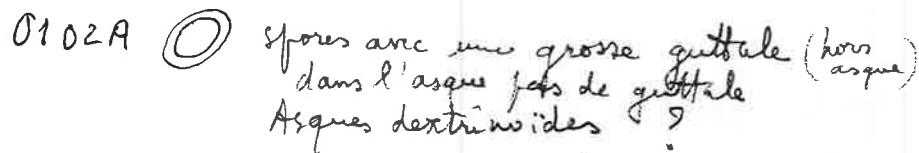 0102A spores avec une grosse guttule (hors asque)
dans l'asque pas de guttule
Asques dextrinoïdes ?